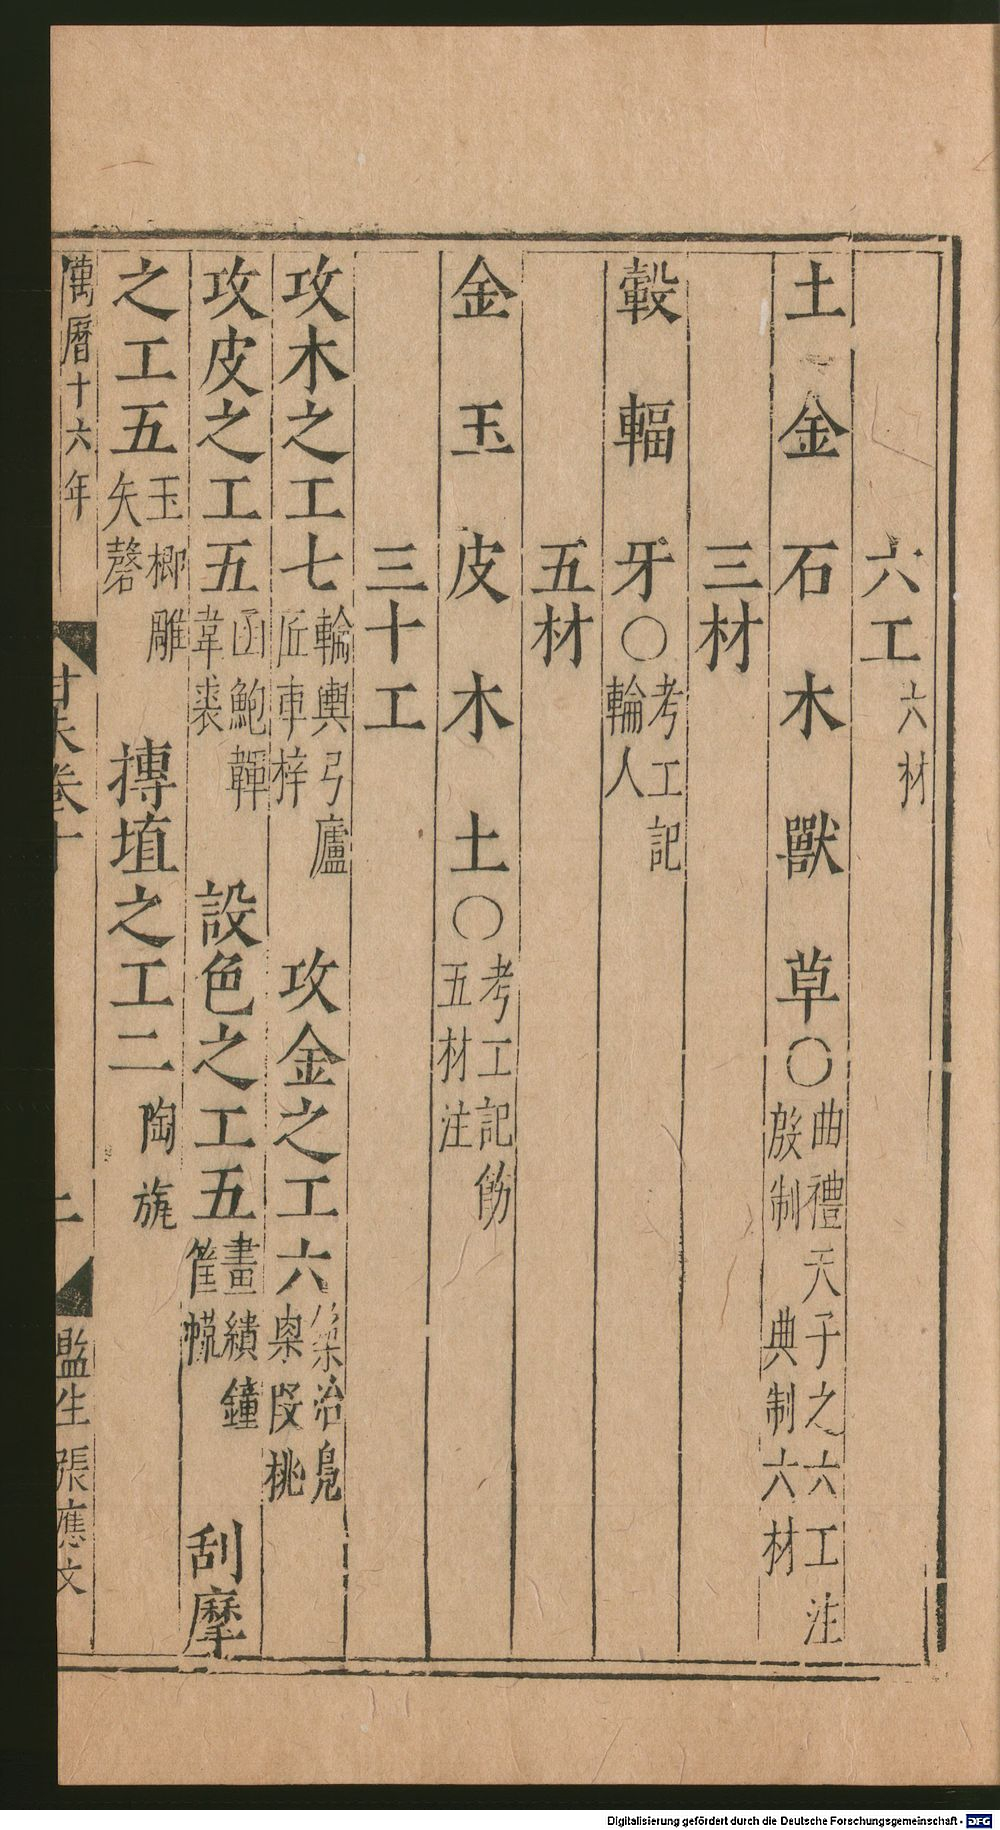 六工六材
土金石木獸草〇曲禮天子之六工注殷制典制六材
三材
轂輻牙〇考工記輪人
五材
金玉皮木土〇考工記飭五材注
三十工
攻木之工七輪輿弓廬匠車梓 攻金之工六築冶鳧㮚段桃
攻皮之工五函鮑韗韋裘 設色之工五畫繢鐘筐㡛 刮摩
之工五玉楖雕矢磬 搏埴之工二陶旊
萬曆十六年 卷十 監生張應文
Digitalisierung gefördert durch die Deutsche Forschungsgemeinschaft - DFG